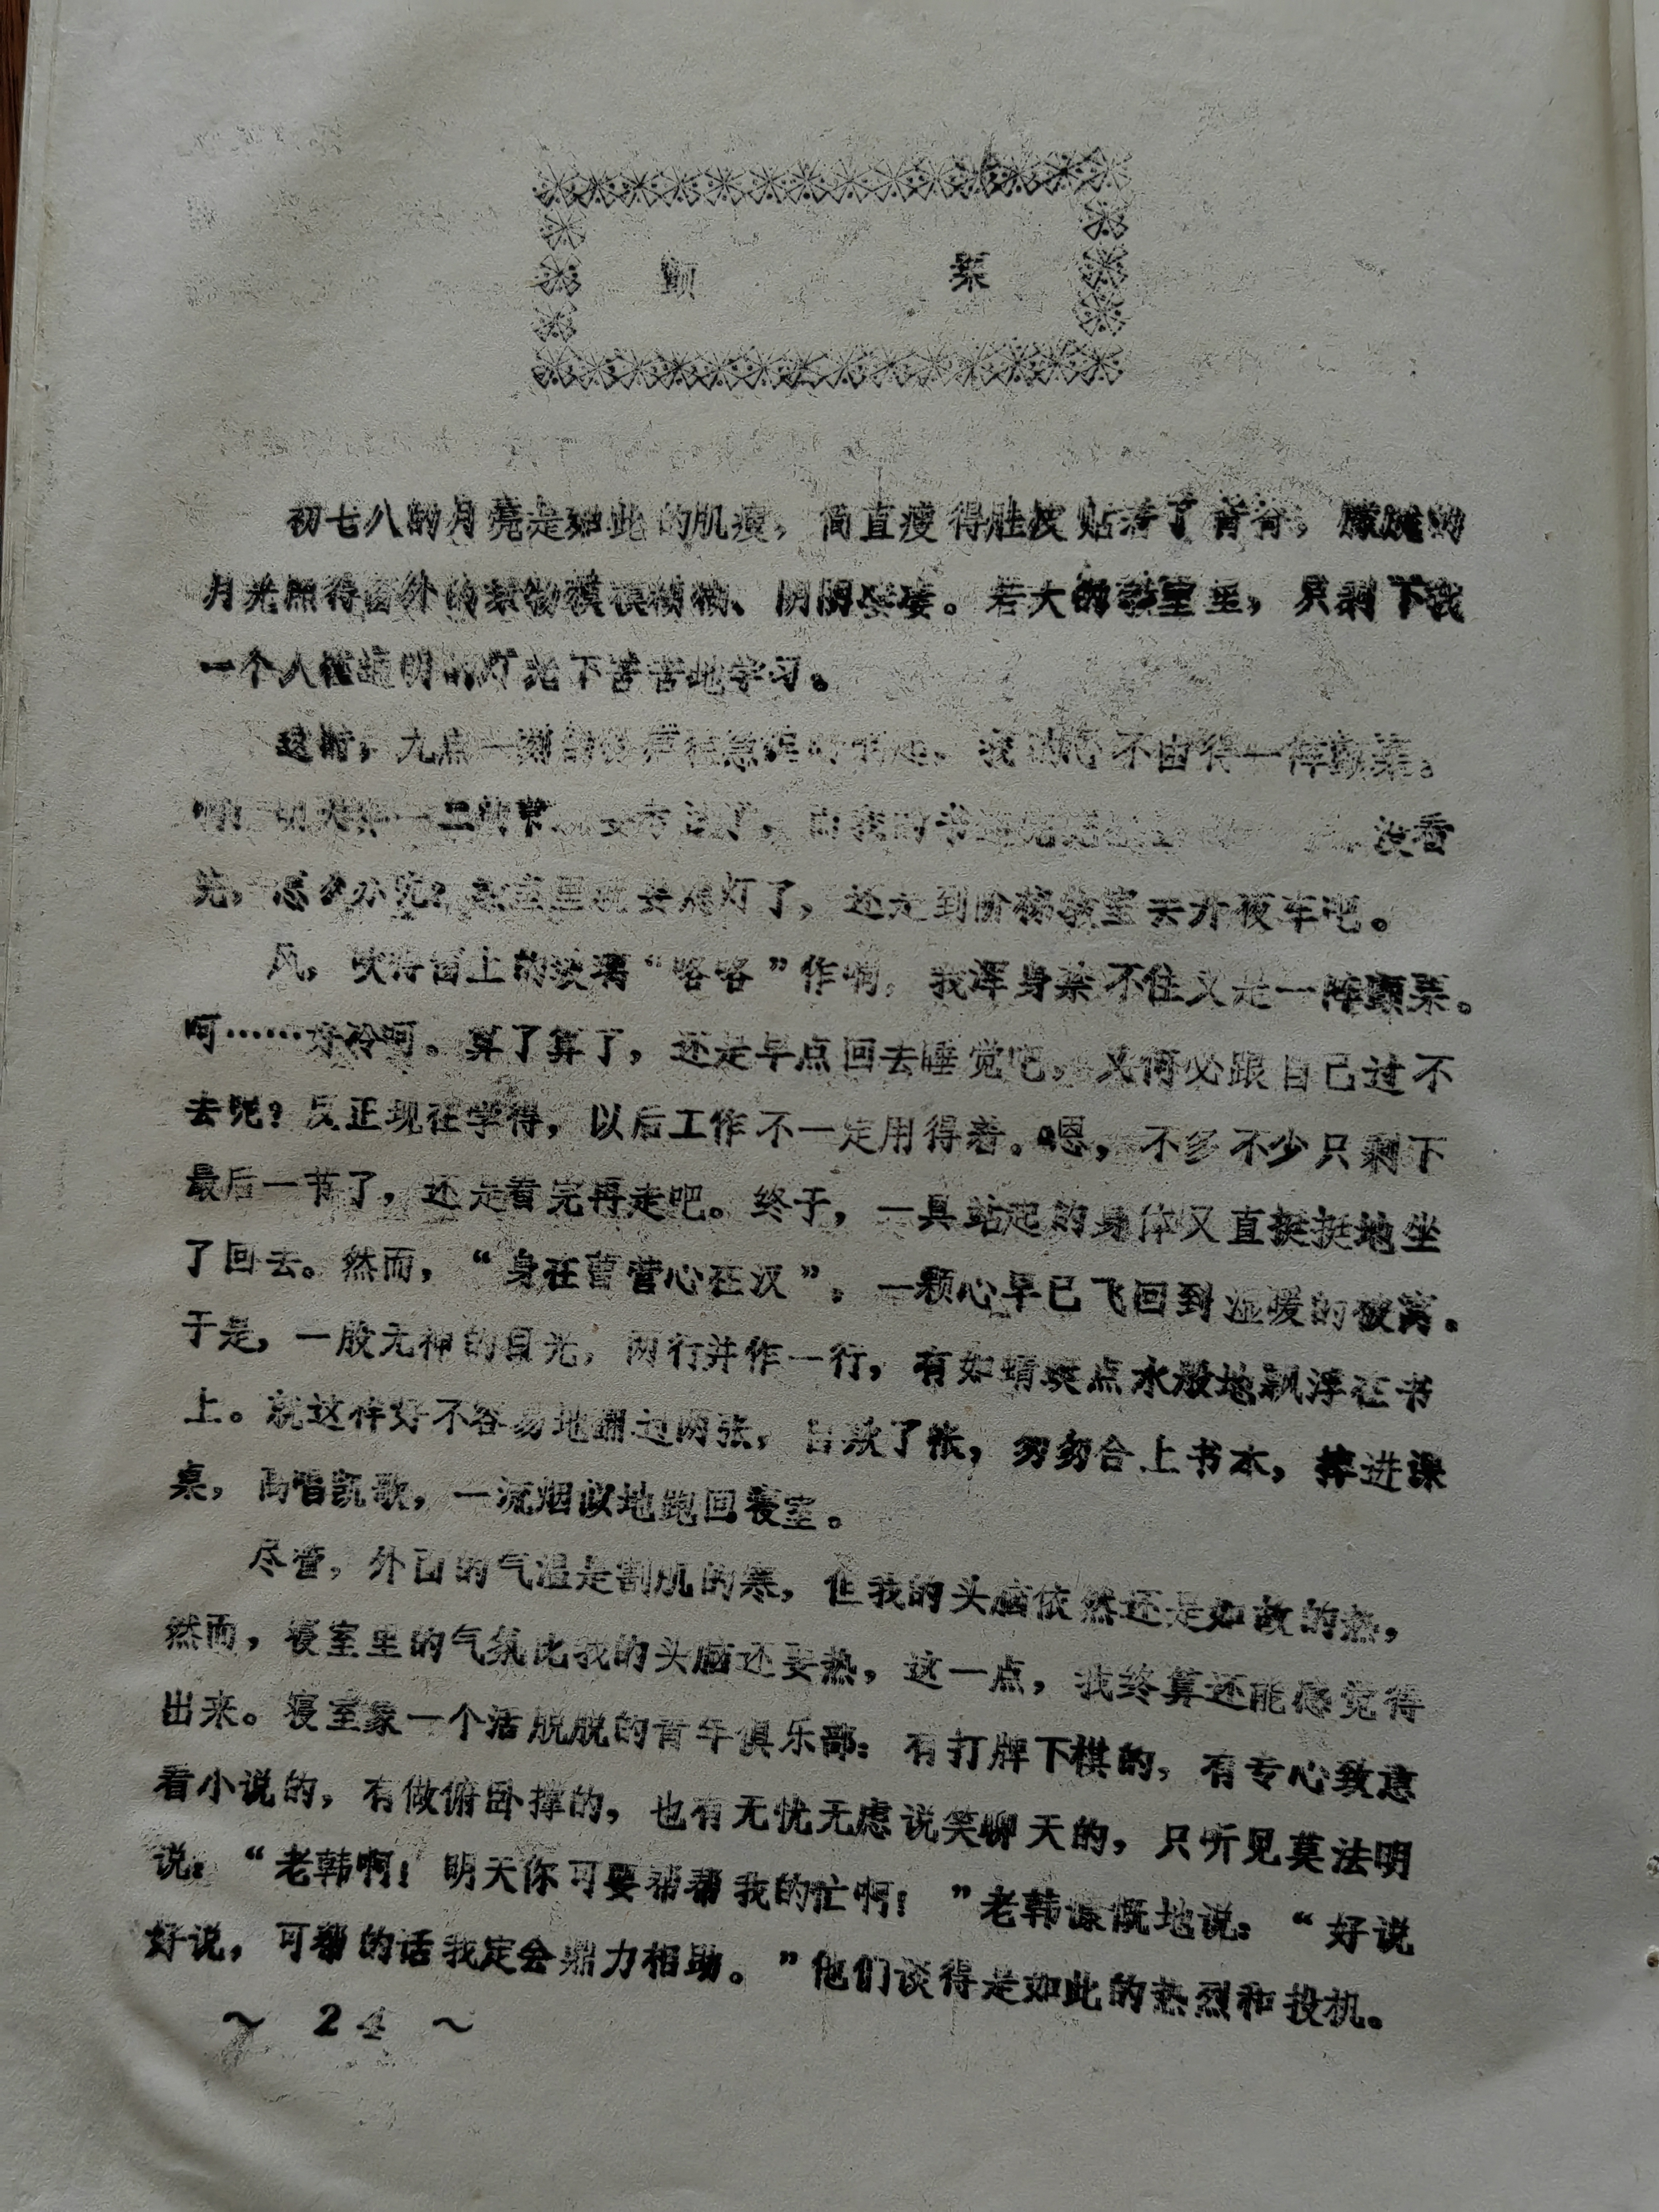 颤 栗
初七八的月亮是如此的肌瘦，简直瘦得肚皮贴着了背脊，朦胧的
月光照得窗外的景物模模糊糊、阴阴婆婆。若大的教室里，只剩下我
一个人在通明的灯光下苦苦地学习。
这时，九点一刻的铃声在急促地响起，我的心不由得一阵颤栗。
啊！明天第一二两节 要考试了，而我的书还 没看
完，怎么办呢？教室里就要熄灯了，还是到阶梯教室去开夜车吧。
风，吹得窗上的玻璃“咯咯”作响，我浑身禁不住又是一阵颤栗。
呵……好冷呵。算了算了，还是早点回去睡觉吧，又何必跟自己过不
去呢？反正现在学得，以后工作不一定用得着。嗯，不多不少只剩下
最后一节了，还是看完再走吧。终于，一具站起的身体又直挺挺地坐
了回去。然而，“身在曹营心在汉”，一颗心早已飞回到温暖的被窝。
于是，一股无神的目光，两行并作一行，有如蜻蜓点水般地飘浮在书
上。就这样好不容易地翻过两张，自欺了帐，匆匆合上书本，摔进课
桌，高唱凯歌，一流烟似地跑回寝室。
尽管，外面的气温是割肌的寒，但我的头脑依然还是如故的热，
然而，寝室里的气氛比我的头脑还要热，这一点，我终算还能感觉得
出来。寝室象一个活脱脱的青年俱乐部：有打牌下棋的，有专心致意
看小说的，有做俯卧撑的，也有无忧无虑说笑聊天的，只听见莫法明
说：“老韩啊！明天你可要帮帮我的忙啊！”老韩慷慨地说：“好说
好说，可帮的话我定会鼎力相助。”他们谈得是如此的热烈和投机。
～ 24 ～